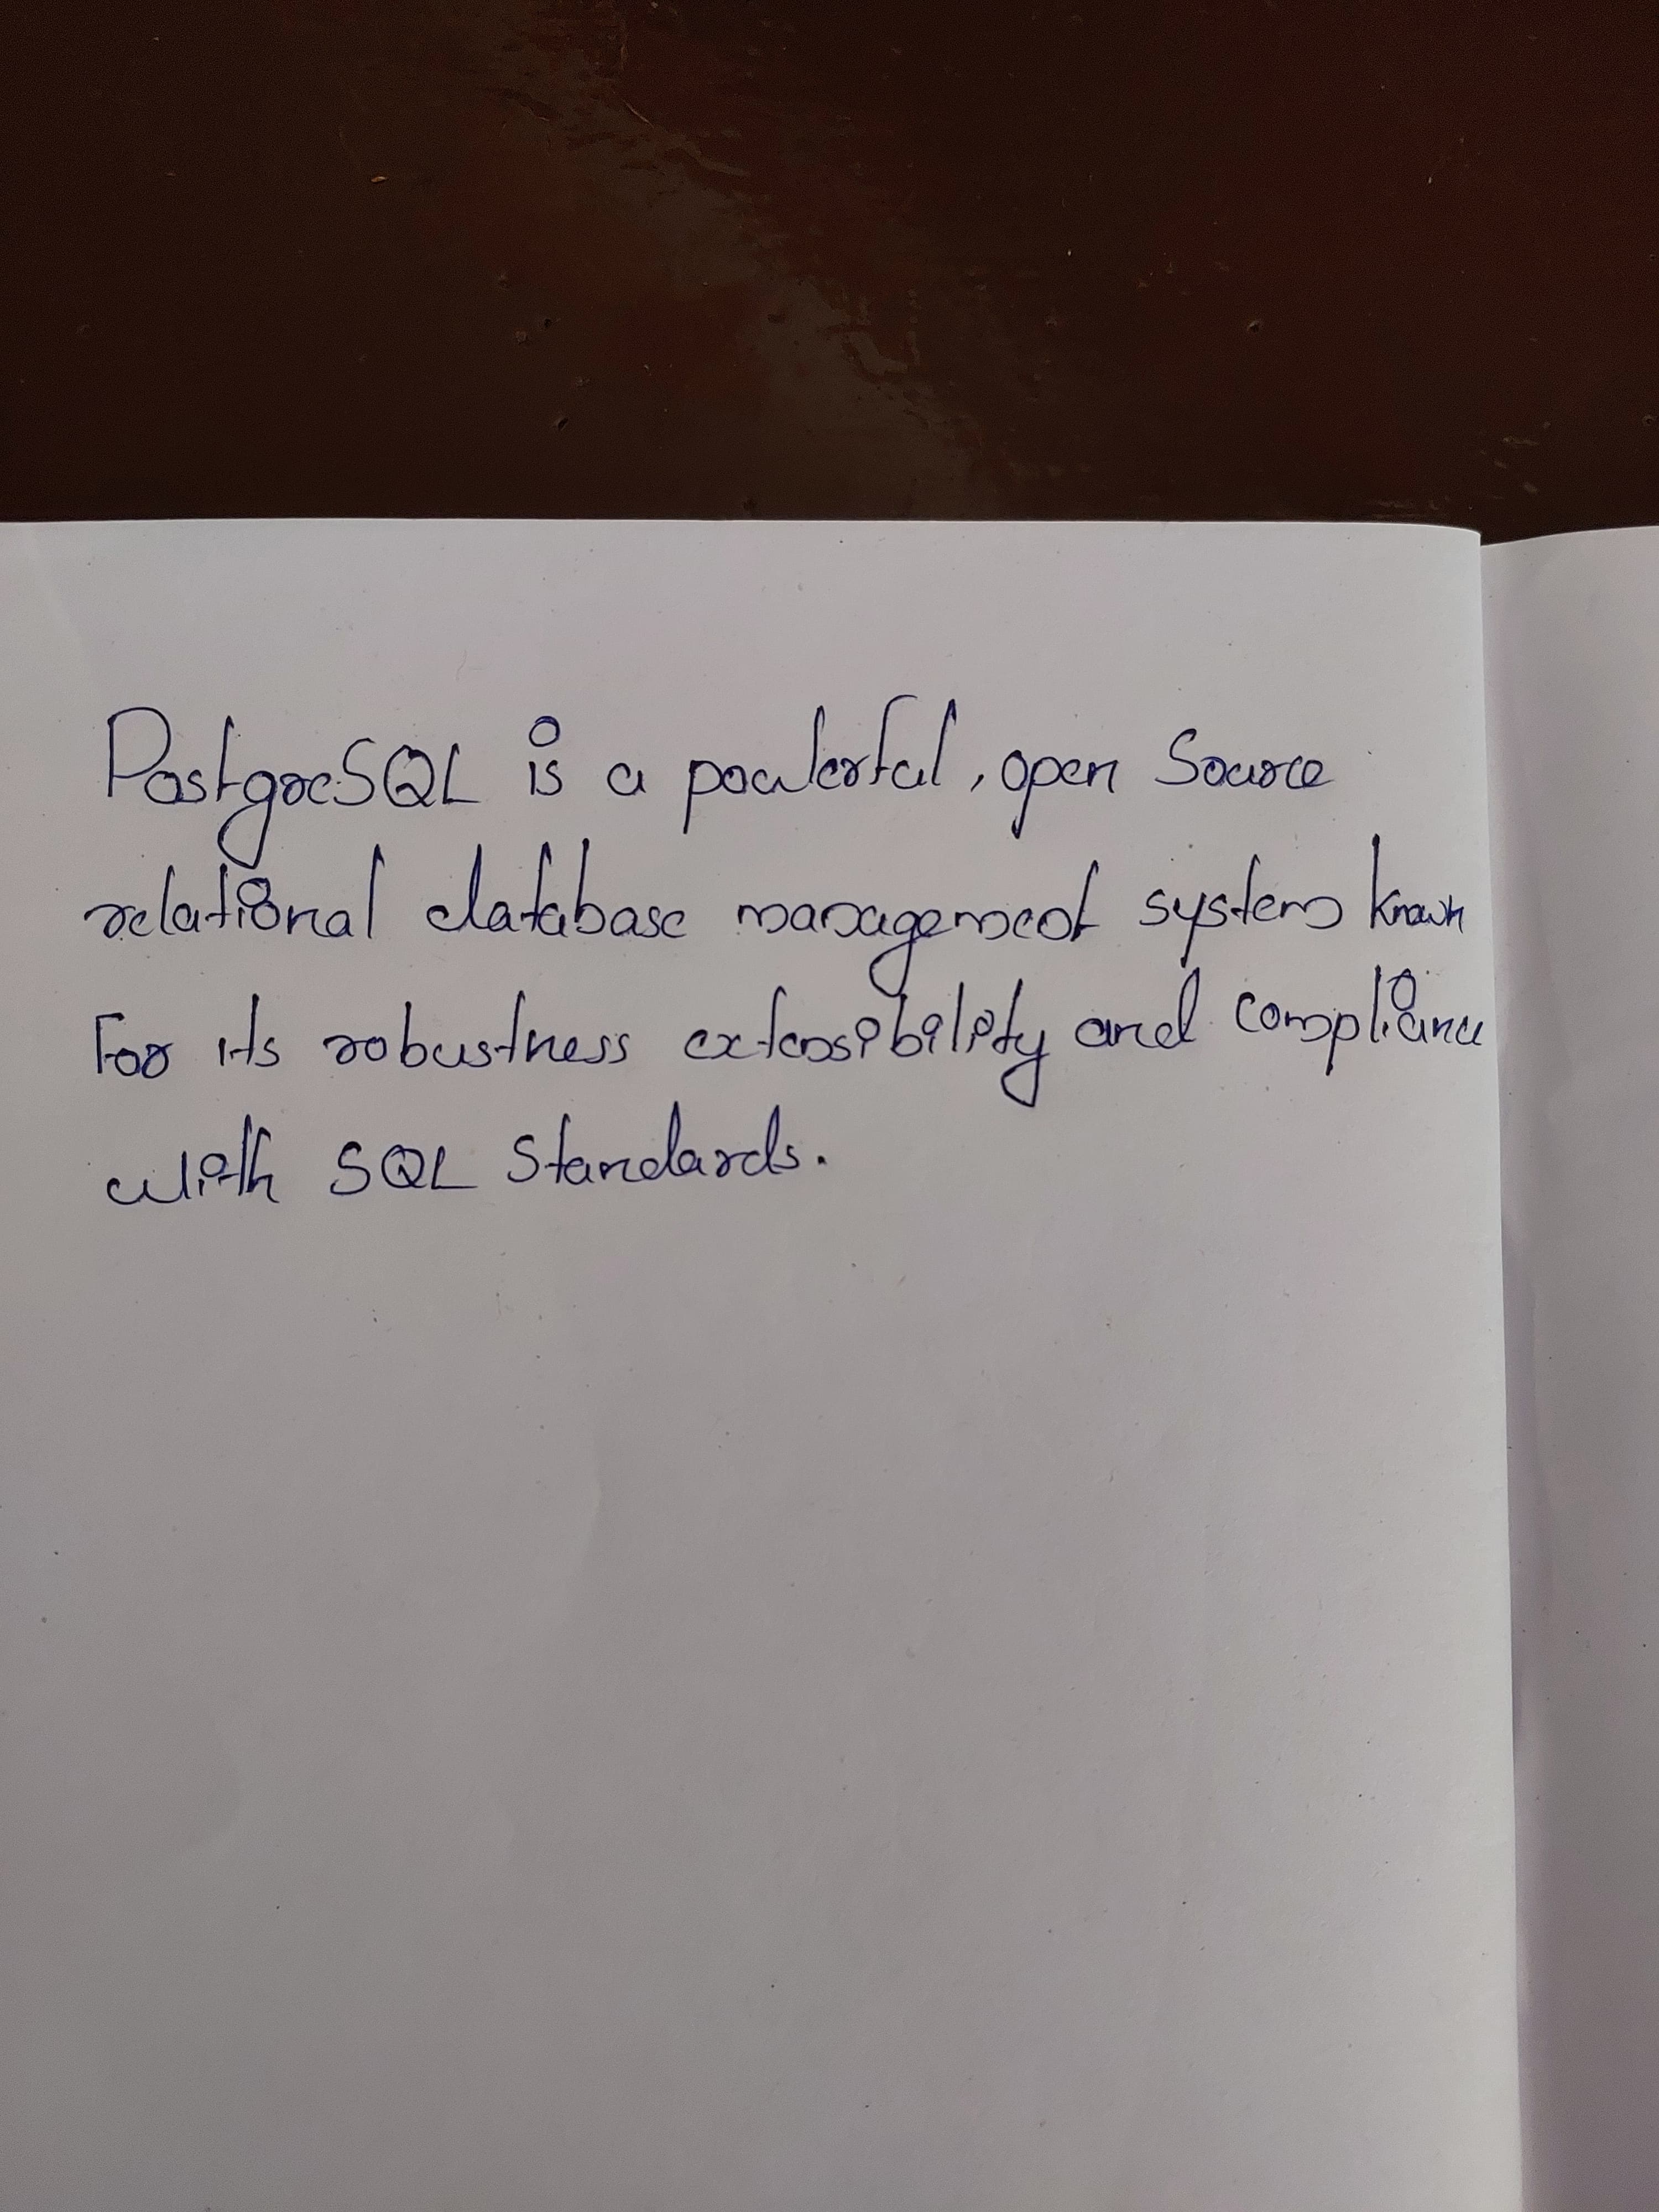 PostgreSQL is a powerful, open Source
relational database management system known
For its robustness extensibility and compliance
with SQL Standards.